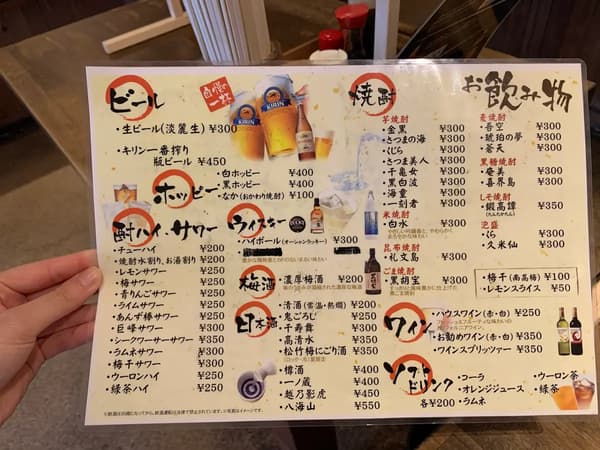 お飲み物
ビール
自慢の
一杯
・生ビール(淡麗生) ¥300
・キリン一番搾り
瓶ビール ¥450
KIRIN
KIRIN
ホッピー
・白ホッピー ¥400
・黒ホッピー ¥400
・なか(おかわり焼酎) ¥100
酎ハイ・サワー
・チューハイ ¥200
・焼酎水割り、お湯割り ¥200
・レモンサワー ¥250
・梅サワー ¥250
・青りんごサワー ¥250
・ライムサワー ¥250
・あんず棒サワー ¥250
・巨峰サワー ¥300
・シークワーサーサワー ¥350
・ラムネサワー ¥300
・梅干サワー ¥350
・ウーロンハイ ¥250
・緑茶ハイ ¥250
ウィスキー
・ハイボール(オーシャンラッキー) ¥300
梅酒
・濃厚梅酒 ¥200
日本酒
・清酒(常温・熱燗) ¥200
・鬼ごろし ¥250
・千寿舞 ¥300
・高清水 ¥350
・松竹梅にごり酒 ¥350
・樽酒 ¥400
・一ノ蔵 ¥400
・越乃影虎 ¥450
・八海山 ¥550
焼酎
芋焼酎
・金黒 ¥300
・さつまの海 ¥300
・くじら ¥300
・さつま美人 ¥300
・千亀女 ¥300
・黒白波 ¥300
・海童 ¥300
・一刻者 ¥300
米焼酎
・白水 ¥300
昆布焼酎
・礼文島 ¥300
ごま焼酎
・黒胡宝 ¥300
麦焼酎
・吾空 ¥300
・琥珀の夢 ¥300
・蒼天 ¥300
黒糖焼酎
・奄美 ¥300
・喜界島 ¥300
しそ焼酎
・鍛高譚 ¥350
(たんたかたん)
泡盛
・佗 ¥300
・久米仙 ¥300
・梅干(南高梅) ¥100
・レモンスライス ¥50
ワイン
・ハウスワイン(赤・白) ¥250
・お勧めワイン(赤・白) ¥350
・ワインスプリッツァー ¥350
ソフトドリンク
各¥200
・コーラ
・オレンジジュース
・ラムネ
・ウーロン茶
・緑茶